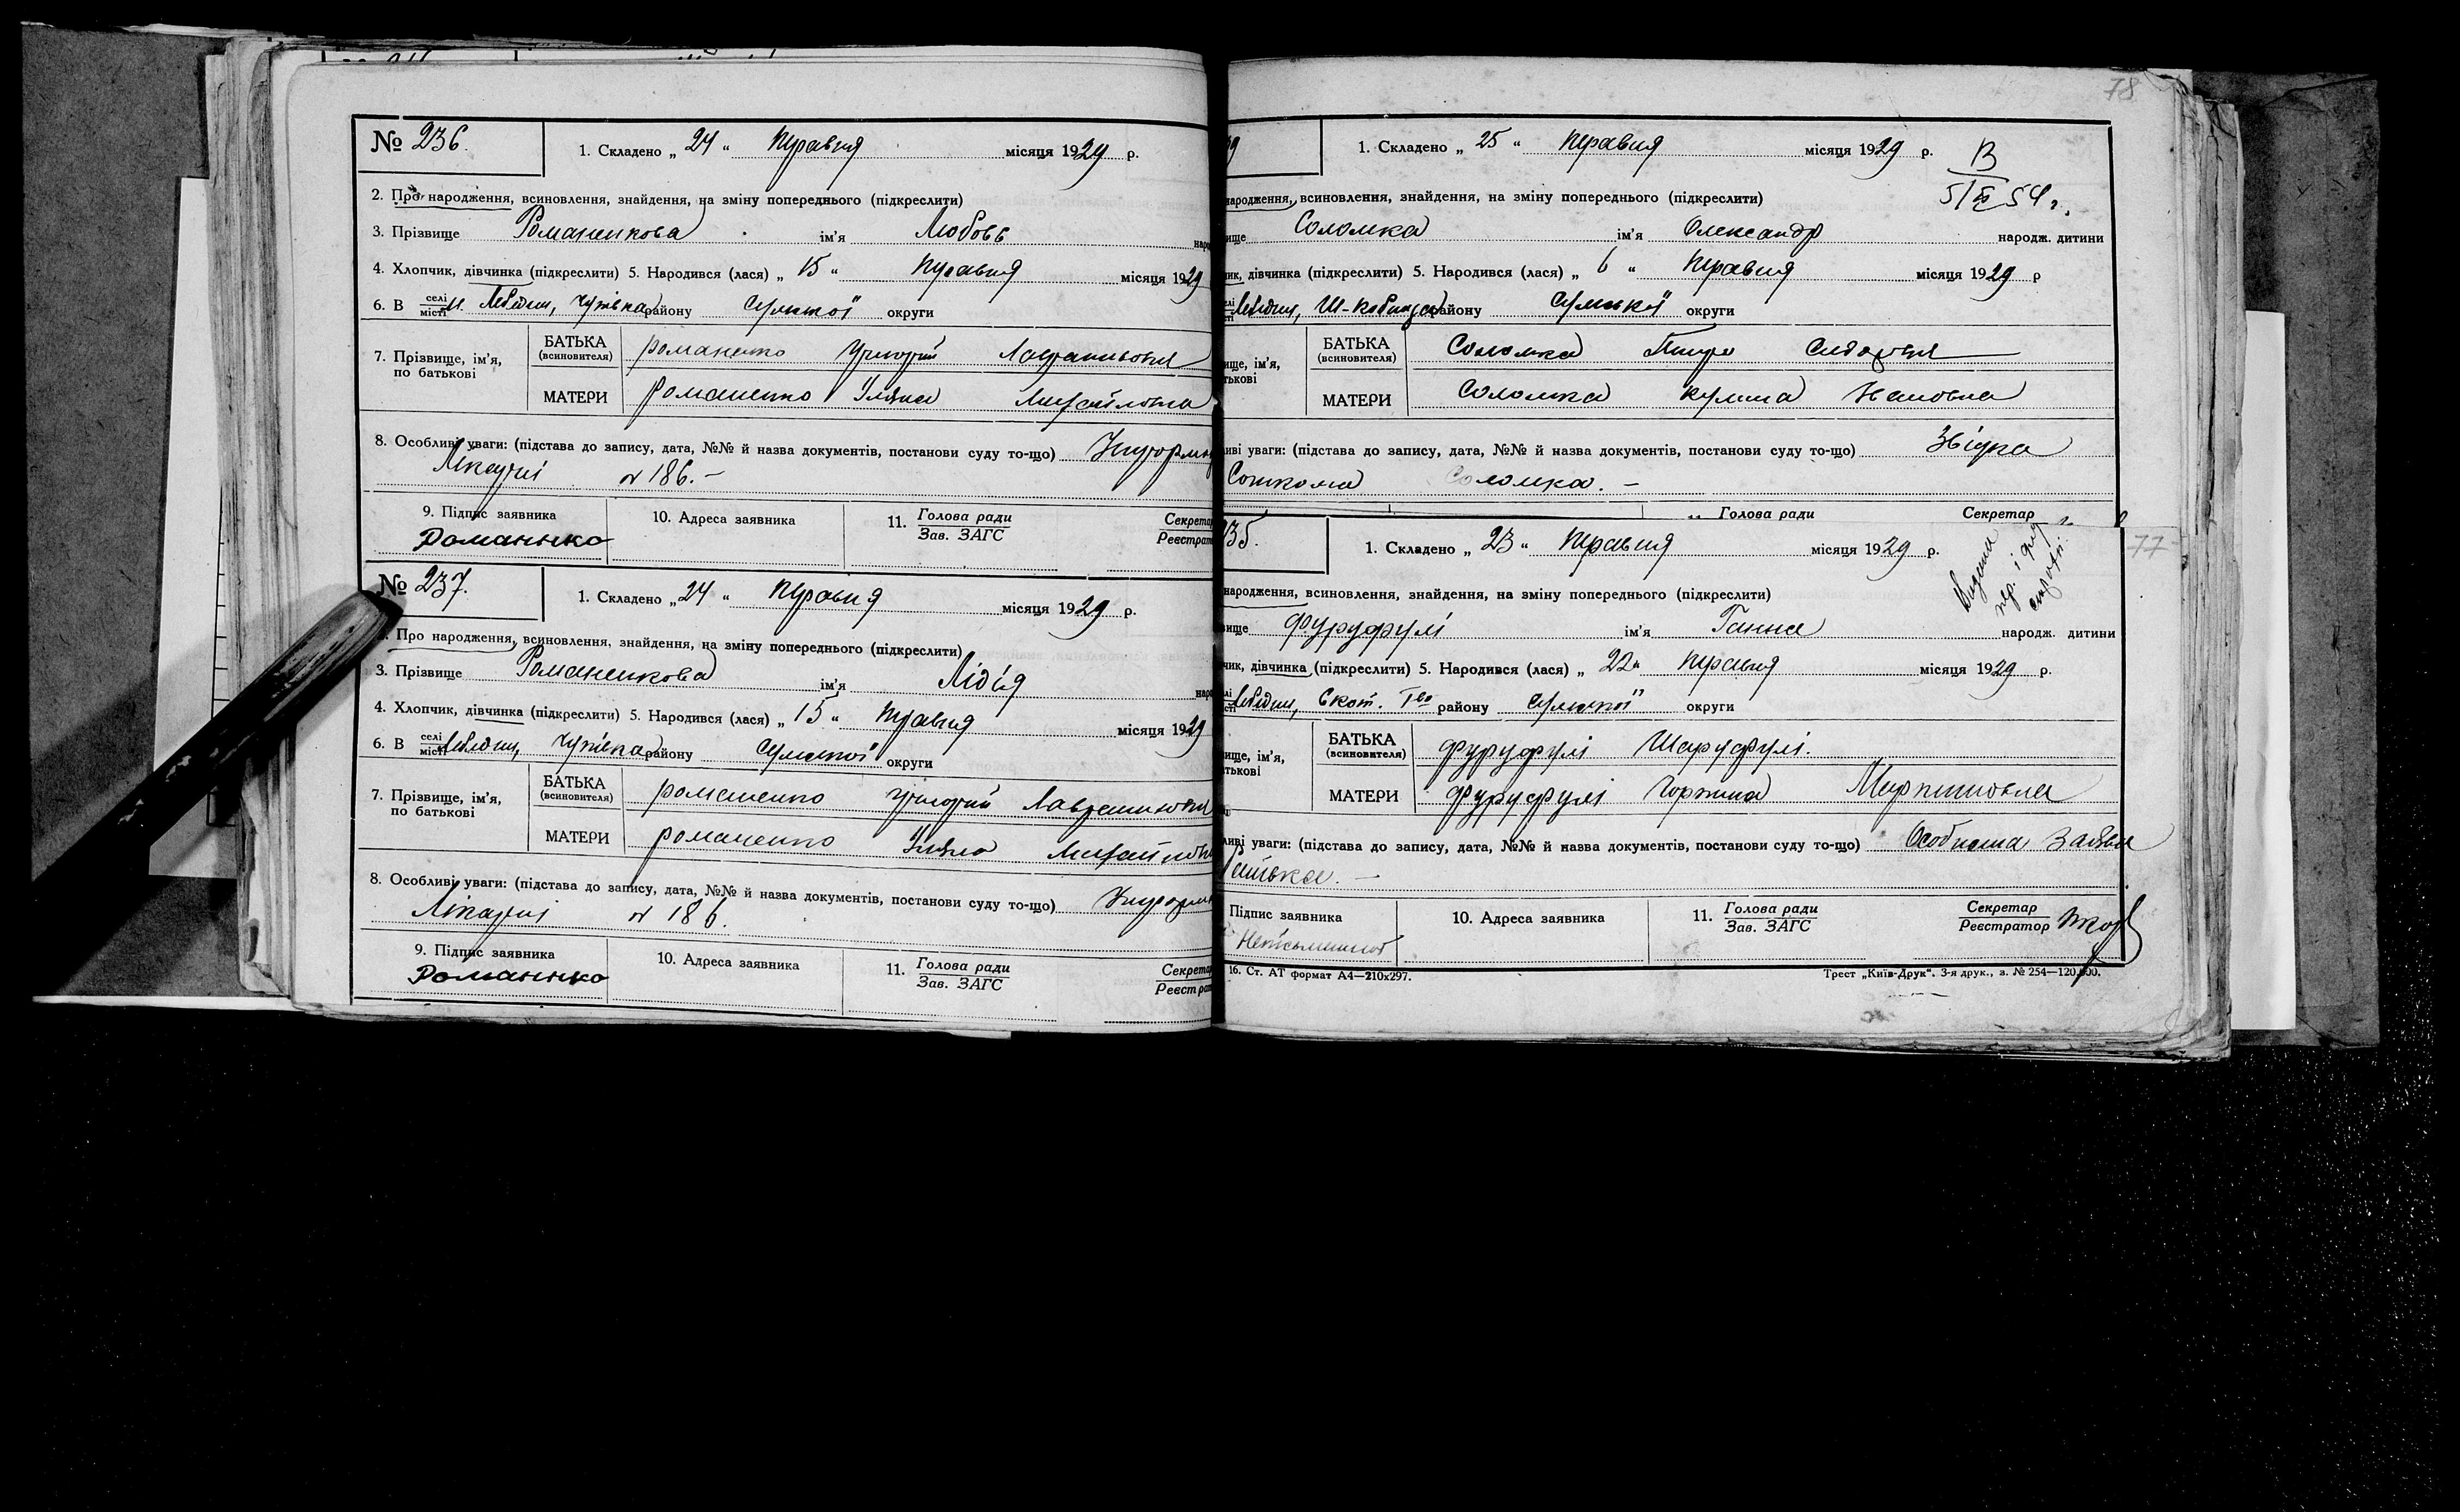 № 236.
1. Складено „ 24 “ травня місяця 1929 р.
2. Про народження, всиновлення, знайдення, на зміну попереднього (підкреслити)
3. Прізвище Романенкова ім'я Любовь
4. Хлопчик, дівчинка (підкреслити) 5. Народився (лася) „ 15 “ травня місяця 1929
6. В селі місті м. Лебедин, району Сумської округи
7. Прізвище, ім'я, по батькові
БАТЬКА (всиновителя) Романенко Григорій
МАТЕРИ Романенко Уляна Михайловна
8. Особливі уваги: (підстава до запису, дата, №№ й назва документів, постанови суду то-що)
Лікарні № 186. –
9. Підпис заявника 10. Адреса заявника 11. Голова ради Зав. ЗАГС
Романько
№ 237.
1. Складено „ 24 “ травня місяця 1929 р.
Про народження, всиновлення, знайдення, на зміну попереднього (підкреслити)
3. Прізвище Романенкова ім'я Лідія
4. Хлопчик, дівчинка (підкреслити) 5. Народився (лася) „ 15 “ травня місяця 1929
6. В селі місті Лебедин, району Сумської округи
7. Прізвище, ім'я, по батькові
БАТЬКА (всиновителя) Романенко Григорій
МАТЕРИ Романенко Уляна
8. Особливі уваги: (підстава до запису, дата, №№ й назва документів, постанови суду то-що)
Лікарні № 186.
9. Підпис заявника 10. Адреса заявника 11. Голова ради Зав. ЗАГС
Романько
78
1. Складено „ 25 “ травня місяця 1929 р.
народження, всиновлення, знайдення, на зміну попереднього (підкреслити)
Соломка ім'я Олександр народж. дитини
дівчинка (підкреслити) 5. Народився (лася) „ 6 “ травня місяця 1929 р
Лебедин, району Сумської округи
БАТЬКА (всиновителя) Соломка Петро
МАТЕРИ Соломка
уваги: (підстава до запису, дата, №№ й назва документів, постанови суду то-що) Звідка
Соломка. –
Голова ради Секретар
77
35.
1. Складено „ 23 “ травня місяця 1929 р.
народження, всиновлення, знайдення, на зміну попереднього (підкреслити)
Фуруфулі ім'я Ганна народж. дитини
дівчинка (підкреслити) 5. Народився (лася) „ 22 “ травня місяця 1929 р.
Лебедин, району Сумської округи
БАТЬКА (всиновителя) Фуруфулі Шаруфулі.
МАТЕРИ Фуруфулі
уваги: (підстава до запису, дата, №№ й назва документів, постанови суду то-що) Особиста заява
батька. –
Підпис заявника 10. Адреса заявника 11. Голова ради Зав. ЗАГС Секретар Реєстратор
16. Ст. АТ формат А4—210х297. Трест „Київ-Друк“. 3-я друк., з. № 254—120.000.